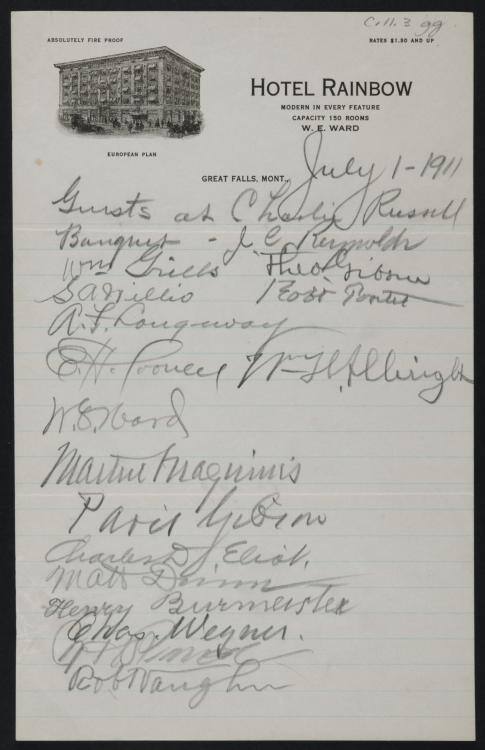 Coll. 3 gg
ABSOLUTELY FIRE PROOF
RATES $1.50 AND UP
HOTEL RAINBOW
MODERN IN EVERY FEATURE
CAPACITY 150 ROOMS
W. E. WARD
EUROPEAN PLAN
GREAT FALLS, MONT., July 1-1911
Guests at Charlie Russell
Banquet - J. C. Reynolds
Wm Grills Theo Gibson
Robt Porter
A. F. Longeway
E. H. Cooney
W. E. Ward
Martin Maginnis
Paris Gibson
Charles D. Eliot.
Matt Dunn
Henry Burmeister
Chas. Wegner.
Robt Vaughn